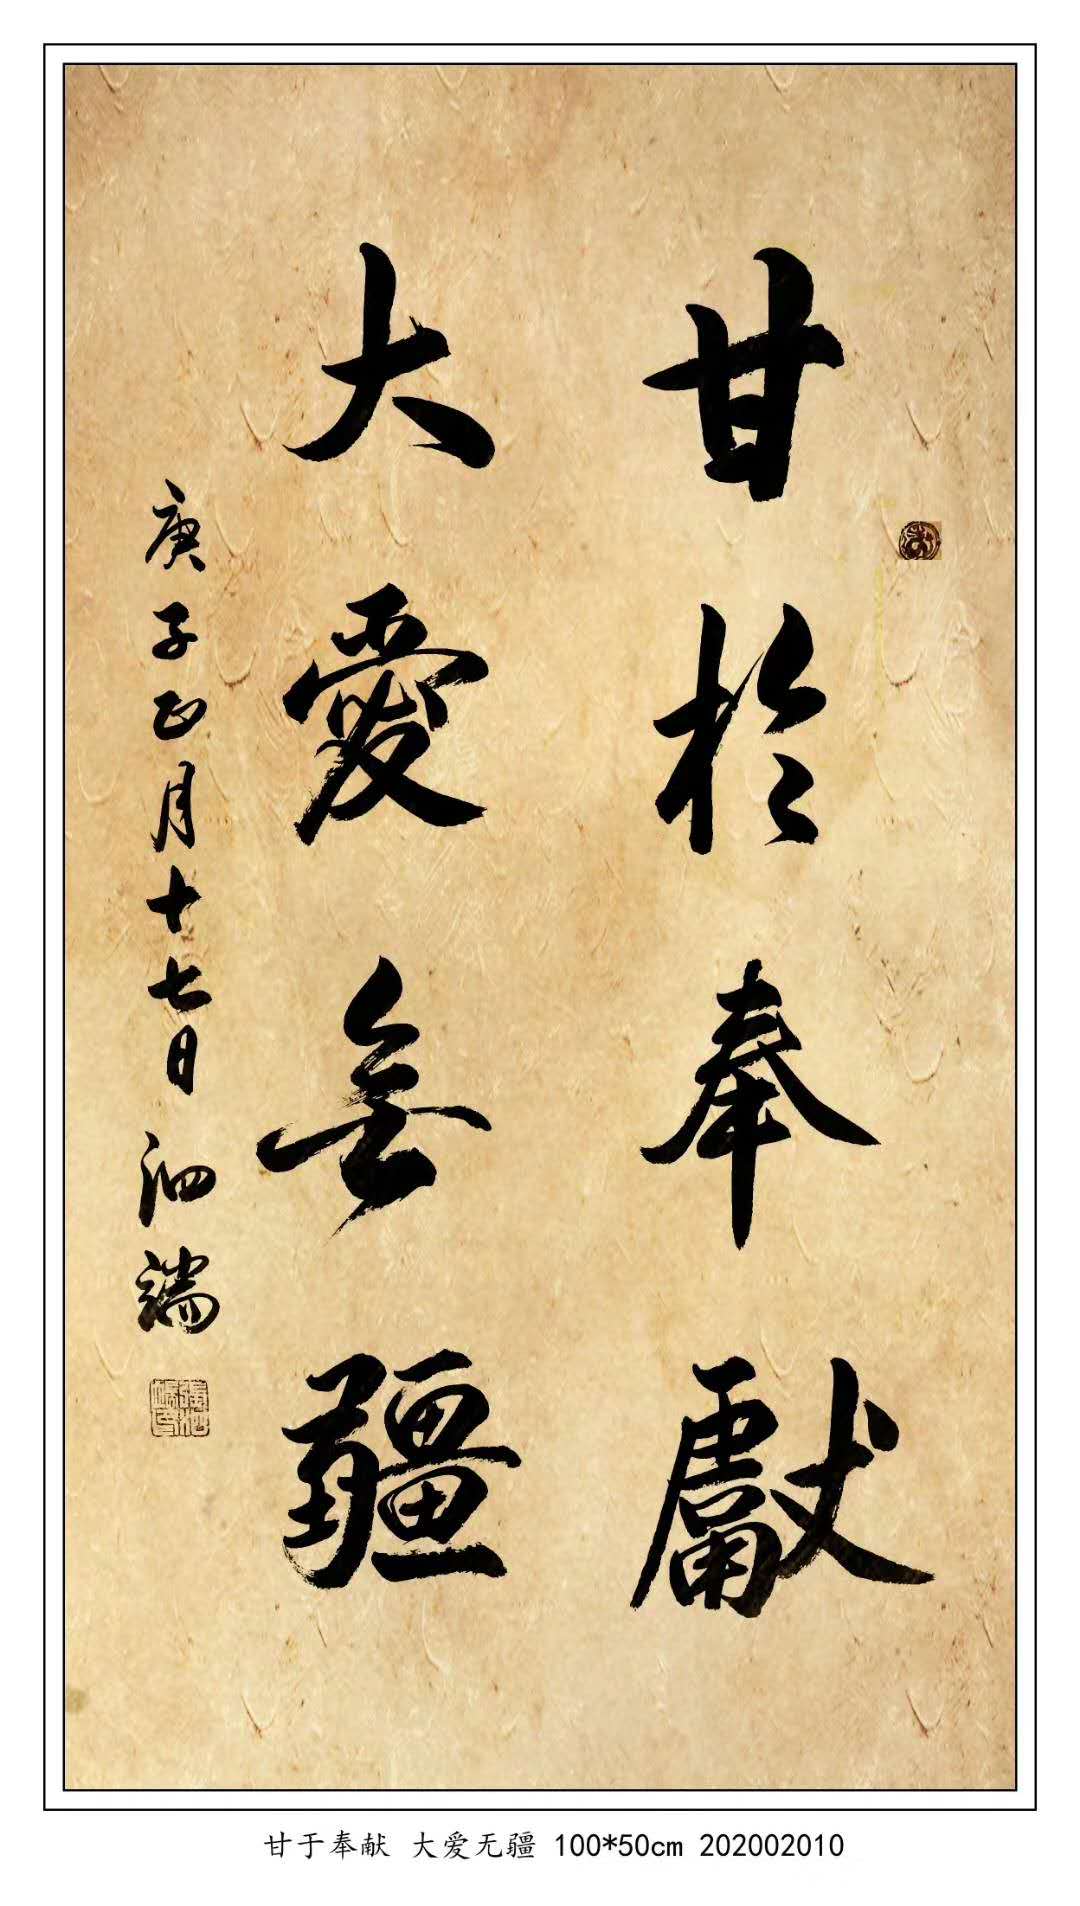 甘於奉獻
大愛無疆
庚子正月十七日 泗端
甘于奉献 大爱无疆 100*50cm 202002010